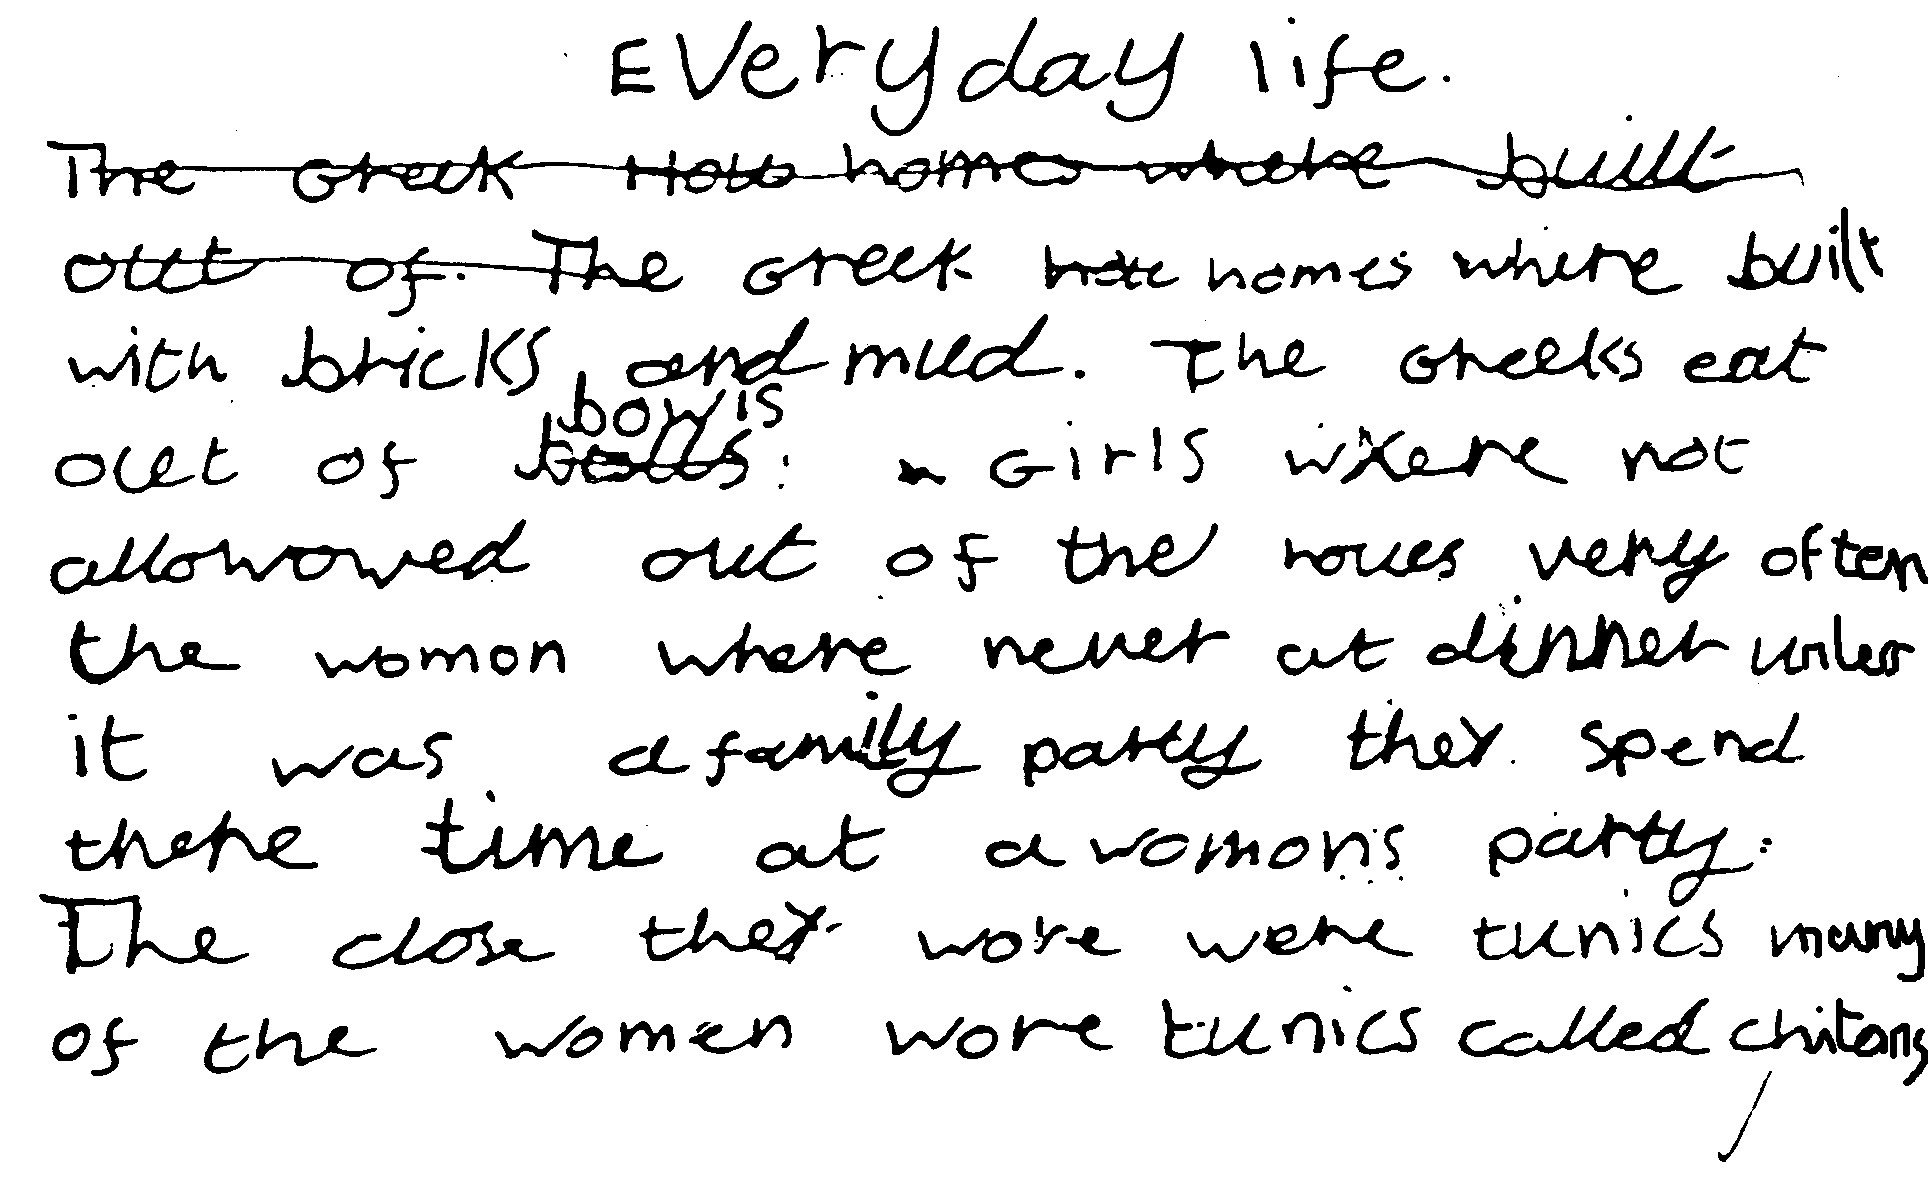 Everyday life.
The Greek How homes where built
out of. The Greek homes where built
with bricks and mud. The Greeks eat
bowls
out of bolls. Girls where not
allowowed out of the houes very often
the womon where never at dinner unless
it was a family party they spend
there time at a womons party.
The close they wore were tunics many
of the women wore tunics called chitons